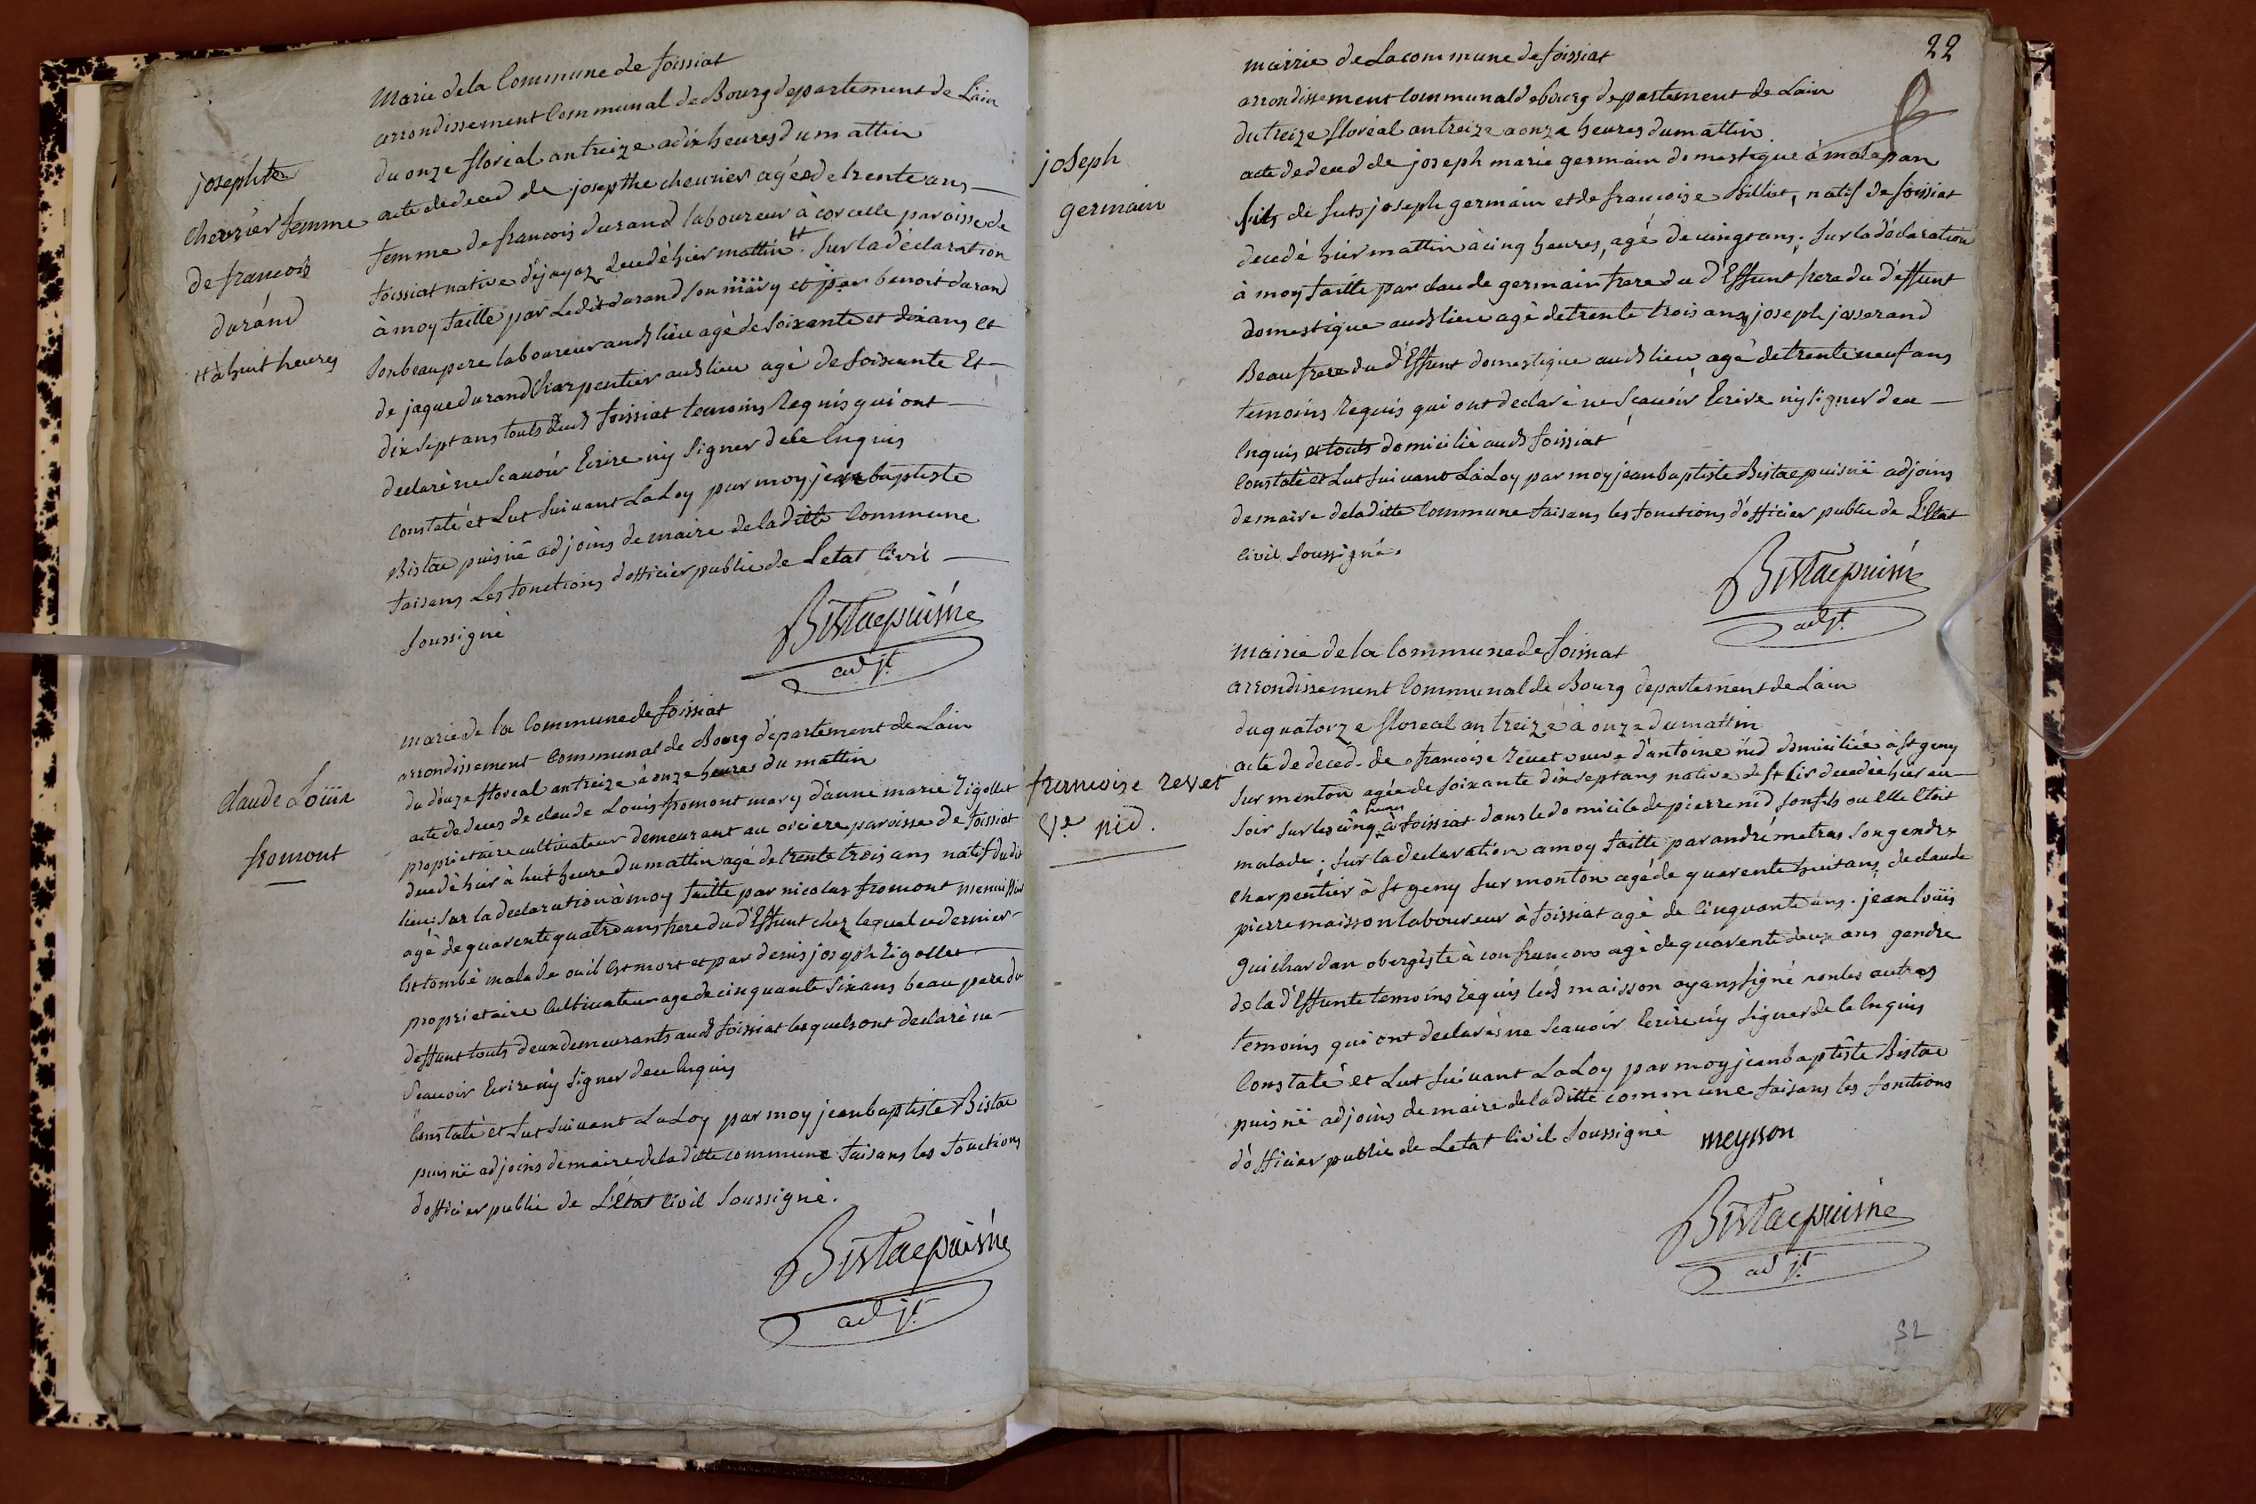 Marie de la Commune de foissiat
arrondissement Communal de Bourg departement de L'ain
du onze floréal an treize a dix heures du mattin
josephte
chevrier femme
de francois
durand
tt à huit heures
acte de deced de josepthe chevrier agée de trente ans
femme de francois durand laboureur à corcelle paroisse de
foissiat native d'ejayaz decedé hier mattin tt. sur la déclaration
à moy faitte par Ledit durand son mary et par benoit durand
son beau pere laboureur aud lieu agé de soixante et dix ans et
de jaque durand Charpentier aud lieu agé de soixante Et
dix sept ans touts dud foissiat temoins Requis qui ont
declaré ne Scauoir Ecrire ny Signer de ce Enquis
Constaté et Lut suivant La Loy par moy jean baptiste
Bistac puisné adjoins de maire de la ditte Commune
faisans Les fonctions d'officier public de Letat Civil
soussigné
Bistac puisné
adjt.
Marie de la Commune de foissiat
arrondissement Communal de Bourg département de Lain
du douze floreal an treize à onze heures du mattin
claude Loüis
fromont
acte de deces de claude Louis fromont mary d'anne marie Rigollet
proprietaire cultivateur demeurant au paroisse de foissiat
decedé hier à huit heure du mattin agé de trente trois ans natif du dit
lieu; sur la declaration à moy faitte par nicolas fromont menuissier
agé de quarente quatre ans frere du d'Effunt chez lequel ce dernier
Est tombé malade ou il Est mort et par denis joseph Rigollet
proprietaire Cultivateur agé de cinquante six ans beau pere du
deffunt touts deux demeurants aud foissiat lesquels ont declaré ne
Scauoir Ecrire ny Signer de ce Enquis
Constaté et Lut suivant La Loy par moy jean baptiste Bistac
puisné adjoins de maire de la ditte commune faisans les fonctions
d'officier public de L'Etat Civil Soussigné.
Bistac puisné
adjt.
22
mairie de La commune de foissiat
arrondissement Communal de bourg departement de Lain
du treize floréal an treize a onze heures du mattin
joseph
germain
acte de deced de joseph marie germain domestique à malepan
fils de futs joseph germain et de francoise Billiet, natif de foissiat
decedé hier mattin à cinq heures, agé de vingt ans; sur la déclaration
à moy faitte par claude germain frere du d'Effunt frere du d'effunt
domestique aud lieu agé de trente trois ans joseph josserand
Beau frere du d'Effunt domestique aud lieu agé de trente neuf ans
temoins Requis qui ont declaré ne Scauoir Ecrire ny signer de ce
Enquis et touts domicilié aud foissiat
Constaté et Lut suivant La Loy par moy jean baptiste Bistac puisné adjoins
de maire de la ditte Commune faisans les fonctions d'officier public de L'Etat
civil Soussigné.
Bistac puisné
adjt.
Mairie de la Commune de foissiat
arrondissement Communal de Bourg departement de Lain
du quatorze floreal an treize à onze du mattin
francoise revet
Ve. nid.
acte de deced de francoise Revet veuve d'antoine nid domiciliée à st geny
sur menton agée de soixante dix sept ans native de st Cir decedée hier au
soir sur les cinq heures à foissiat dans le domicile de pierre nid son fils ou Elle Etoit
malade; sur la declaration a moy faitte par andré metras son gendre
Charpentier à st geny sur monton agé de quarente huit ans, de claude
pierre maisson laboureur à foissiat agé de Cinquante ans. jean loüis
guichardan obergiste à confrancons agé de quarente deux ans gendre
de la d'Effunte temoins Requis led maisson ayans signé non les autres
temoins qui ont declarés ne scauoir Ecrire ny signer de ce Enquis
Constaté et Lut suivant La Loy par moy jean baptiste Bistac
puisné adjoins de maire de la ditte commune faisans les fonctions
d'officier public de Letat Civil Soussigné meysson
Bistac puisné
adjt.
32